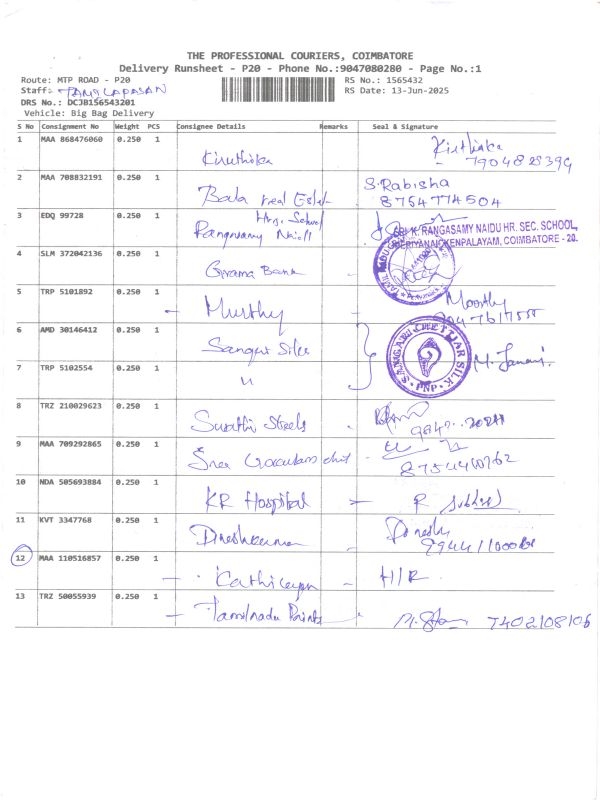 THE PROFESSIONAL COURIERS, COIMBATORE
Delivery Runsheet - P20 - Phone No.:9047080280 - Page No.:1
Route: MTP ROAD - P20 RS No.: 1565432
Staff: TAMILAPASAN RS Date: 13-Jun-2025
DRS No.: DCJB156543201
Vehicle: Big Bag Delivery
S No Consignment No Weight PCS Consignee Details Remarks Seal & Signature
1 MAA 868476060 0.250 1 Kiruthika Kiruthika
7904828394
2 MAA 708832191 0.250 1 Bala real Estate S. Rabisha
8754774504
3 EDQ 99728 0.250 1 Hr. School
SRI K. RANGASAMY NAIDU HR. SEC. SCHOOL,
PERIYANAICKENPALAYAM, COIMBATORE - 20.
4 SLM 372042136 0.250 1 Grama Bank
5 TRP 5101892 0.250 1 Murthy Moorthy
6 AMD 30146412 0.250 1
7 TRP 5102554 0.250 1 〃 SANGARU CHETTIAR SILK PNP M. Janani
8 TRZ 210029623 0.250 1 Steels
9 MAA 709292865 0.250 1 Sree
10 NDA 505693884 0.250 1 KR Hospital
11 KVT 3347768 0.250 1 Dineshkumar Dinesh
12 MAA 110516857 0.250 1 H/R
13 TRZ 50055939 0.250 1 Tamilnadu Paints 7402108106